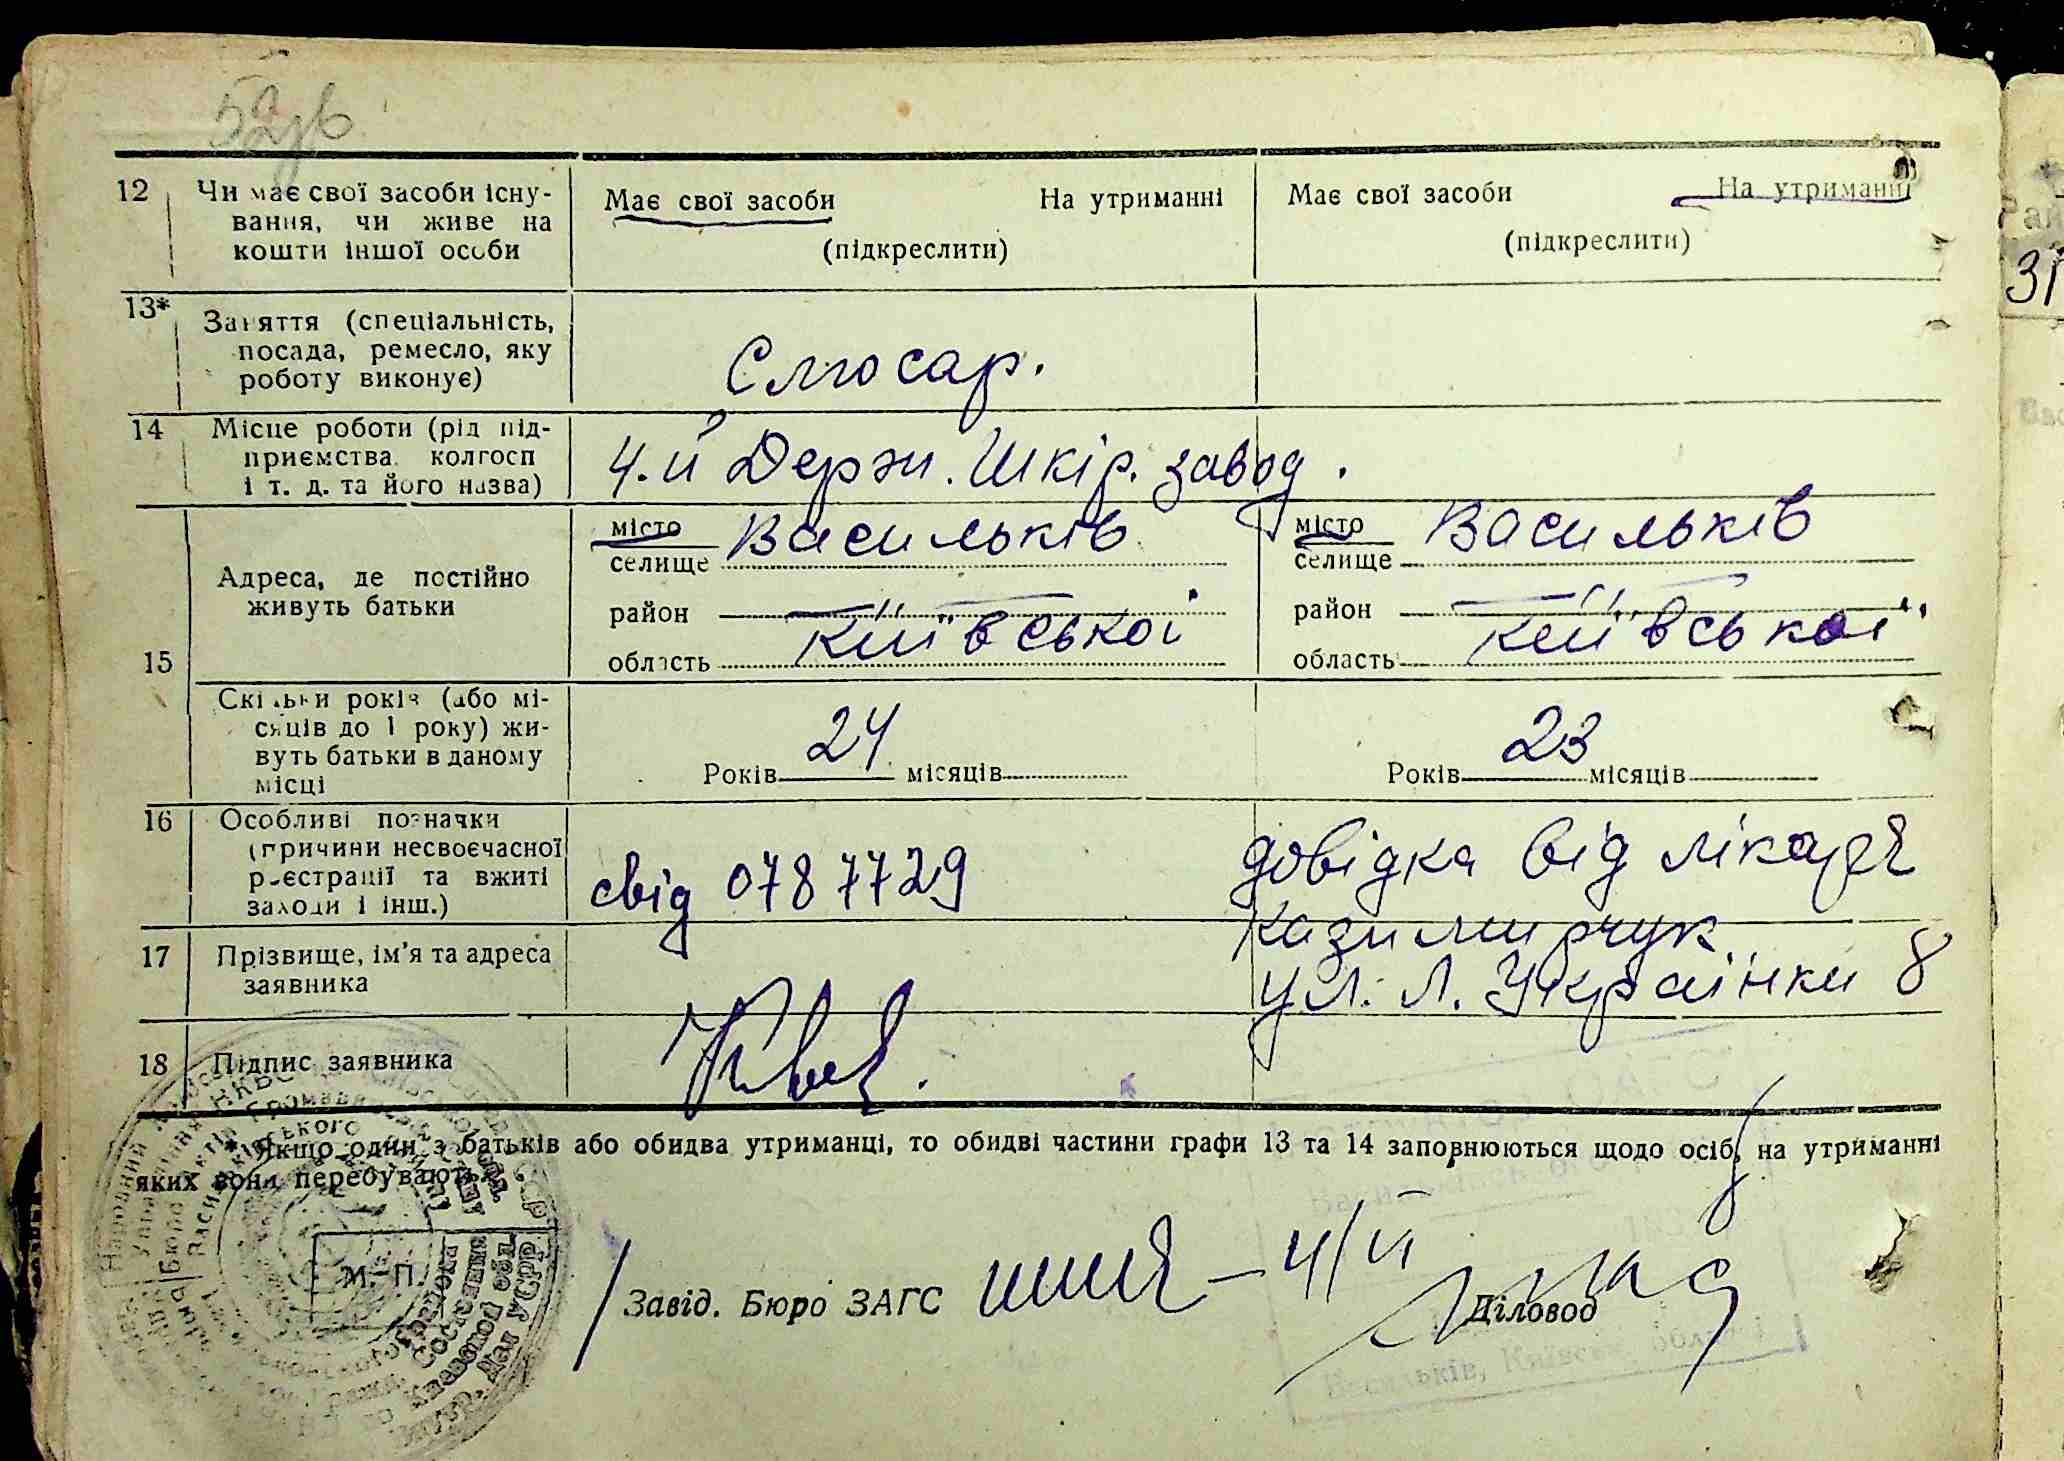 52зв
12 Чи має свої засоби існу-
вання, чи живе на
кошти іншої особи
Має свої засоби На утриманні
(підкреслити)
Має свої засоби На утриманні
(підкреслити)
13* Заняття (спеціальність,
посада, ремесло, яку
роботу виконує)
Слюсар.
14 Місце роботи (рід під-
приємства, колгосп
і т. д. та його назва)
4.й Держ. Шкір. завод.
15 Адреса, де постійно
живуть батьки
місто Васильків
селище
район
область Київської
місто Васильків
селище
район
область Київської
Скільки років (або мі-
сяців до 1 року) жи-
вуть батьки в даному
місці
Років 24 місяців
Років 23 місяців
16 Особливі позначки
(причини несвоєчасної
реєстрації та вжиті
заходи і інш.)
свід 0787729
довідка від лікаря
Казимирчук
ул. Л. Українки 8
17 Прізвище, ім'я та адреса
заявника
18 Підпис заявника
*Якщо один з батьків або обидва утриманці, то обидві частини графи 13 та 14 заповнюються щодо осіб, на утриманні
яких вони перебувають.
М. П.
Завід. Бюро ЗАГС
Діловод
Васильків, Київськ. області
31